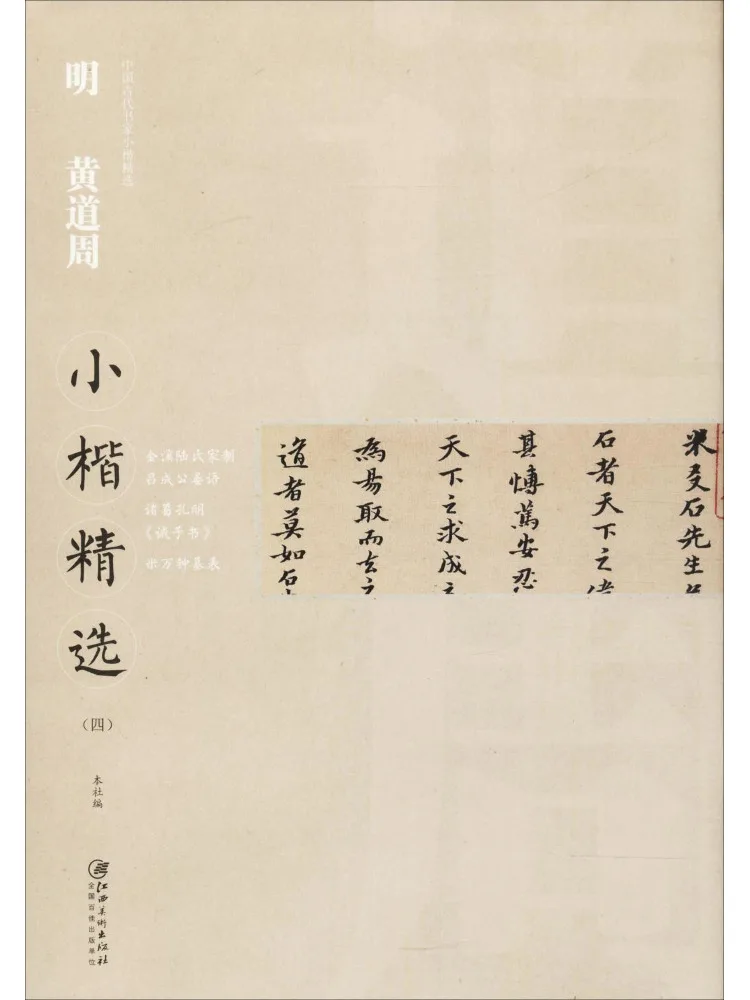 中国古代书家小楷精选
明 黄道周
小楷精选
（四）
金溪陆氏家制
吕成公卷语
诸葛孔明
《诫子书》
米万钟墓表
米友石先生
石者天下之
其慱萬安忍
天下之求成
為易取而去之
道者莫如石
本社编
江西美术出版社
全国百佳出版单位